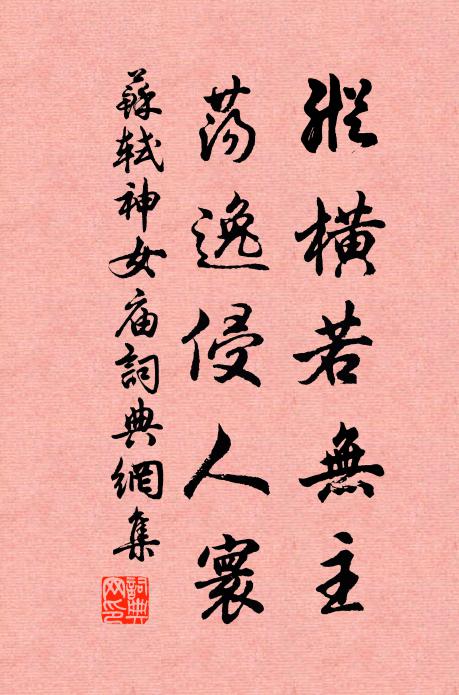 縱橫若無主
蕩逸侵人寰
蘇軾神女庙詞典網集
詞典網印